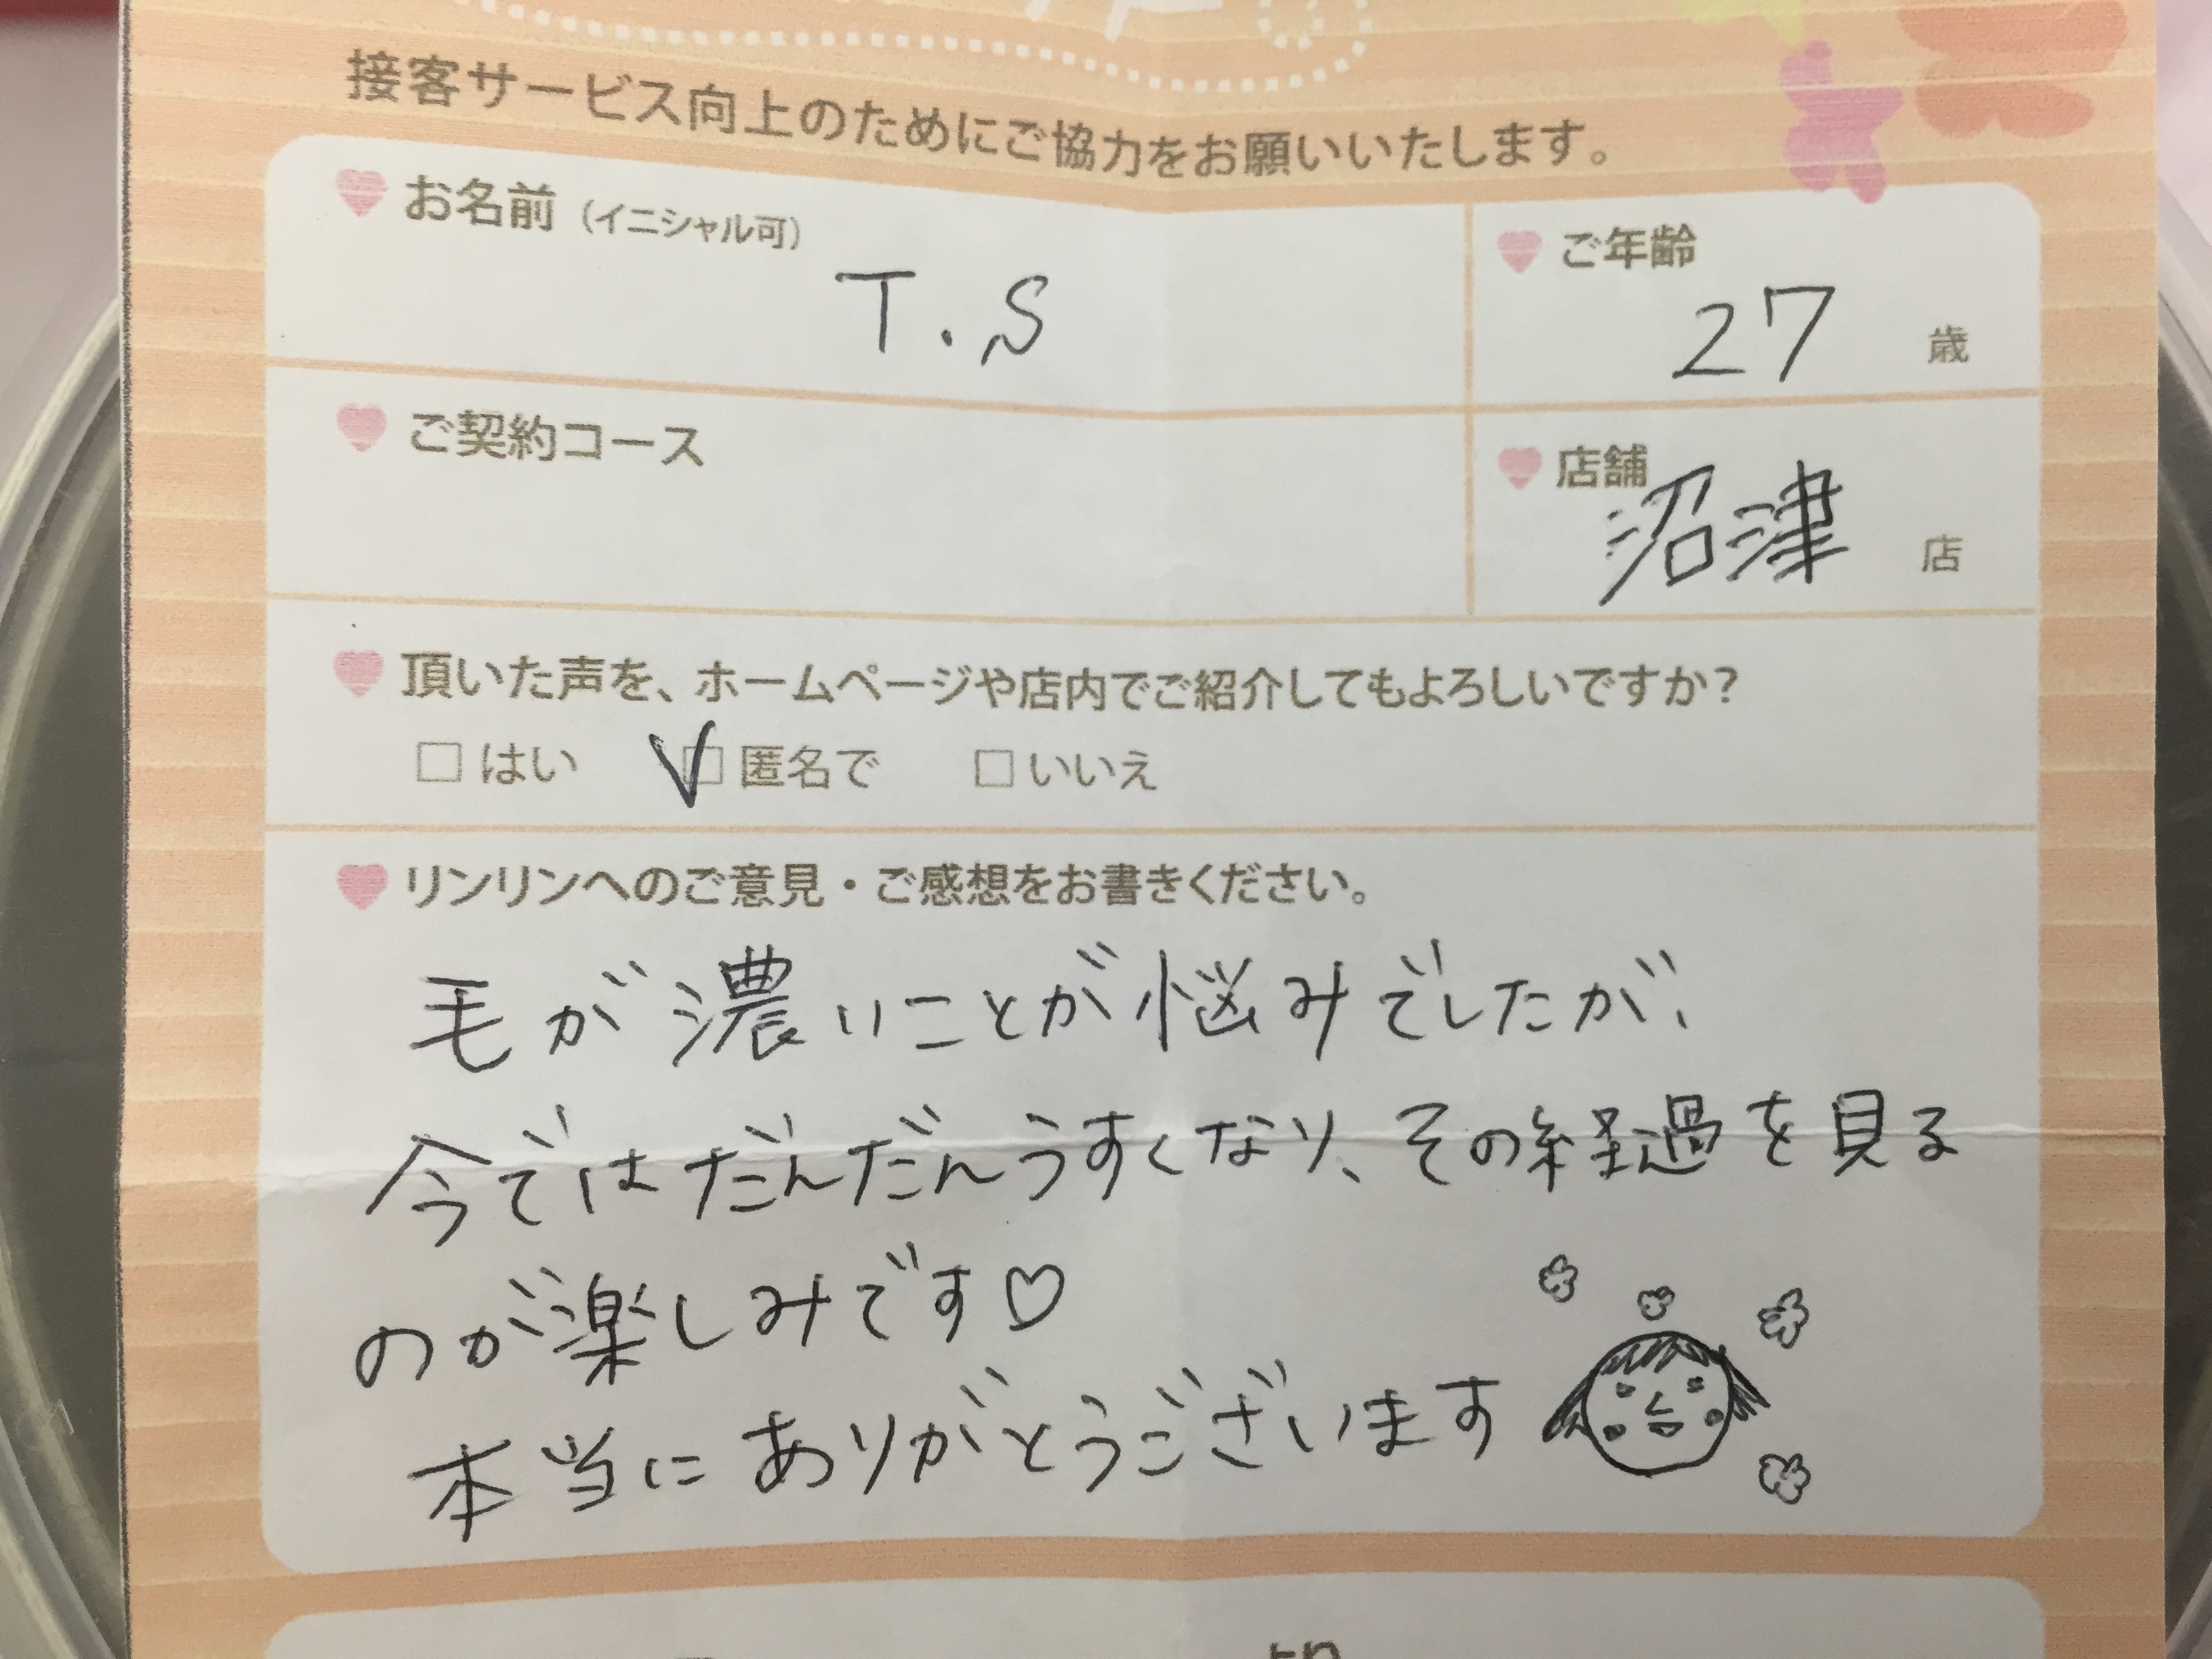 接客サービス向上のためにご協力をお願いいたします。
お名前（イニシャル可）
T.S
ご年齢
27 歳
ご契約コース
店舗
沼津 店
頂いた声を、ホームページや店内でご紹介してもよろしいですか？
はい 匿名で いいえ
リンリンへのご意見・ご感想をお書きください。
毛が濃いことが悩みでしたが、
今ではだんだんうすくなり、その経過を見る
のが楽しみです♡
本当にありがとうございます